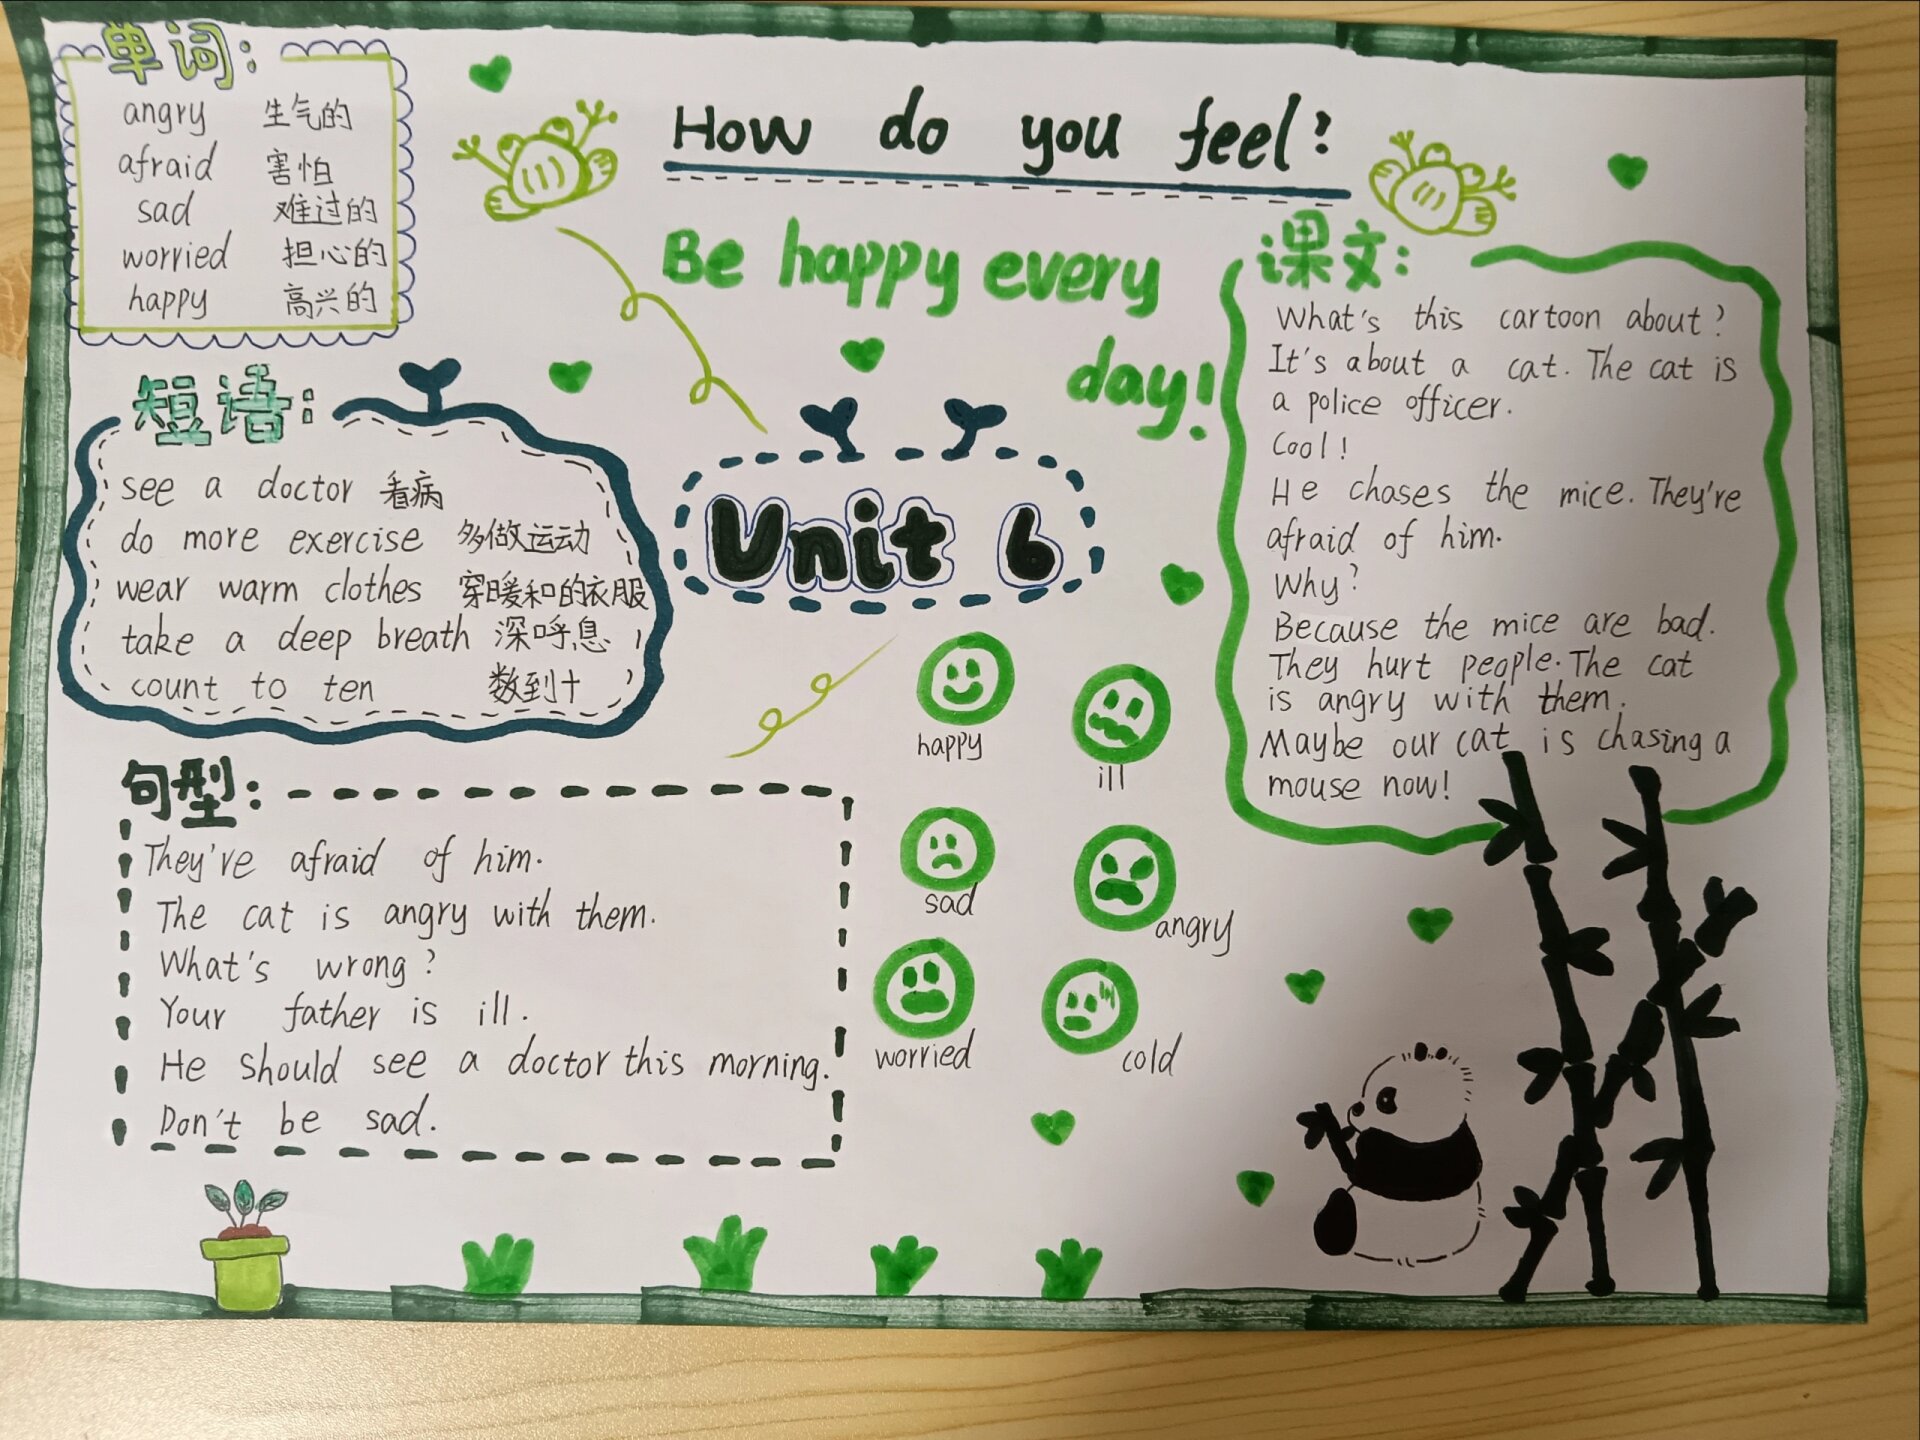 单词:
angry 生气的
afraid 害怕
sad 难过的
worried 担心的
happy 高兴的
How do you feel?
Be happy every
day!
短语:
see a doctor 看病
do more exercise 多做运动
wear warm clothes 穿暖和的衣服
take a deep breath 深呼息
count to ten 数到十
Unit 6
课文:
What's this cartoon about?
It's about a cat. The cat is
a police officer.
Cool!
He chases the mice. They're
afraid of him.
Why?
Because the mice are bad.
They hurt people. The cat
is angry with them.
Maybe our cat is chasing a
mouse now!
句型:
They're afraid of him.
The cat is angry with them.
What's wrong?
Your father is ill.
He should see a doctor this morning.
Don't be sad.
happy
ill
sad
angry
worried
cold